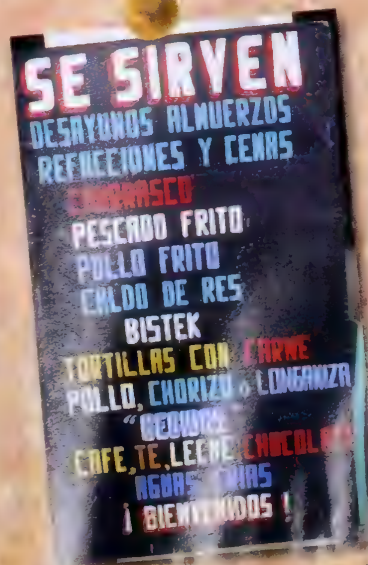 SE SIRVEN
DESAYUNOS ALMUERZOS
REFACCIONES Y CENAS
CHURRASCO
PESCADO FRITO
POLLO FRITO
CALDO DE RES
BISTEK
TORTILLAS CON CARNE
POLLO, CHORIZO o LONGANIZA
"BEBIDAS"
CAFE, TE, LECHE, CHOCOLATE
AGUAS FRIAS
¡ BIENVENIDOS !